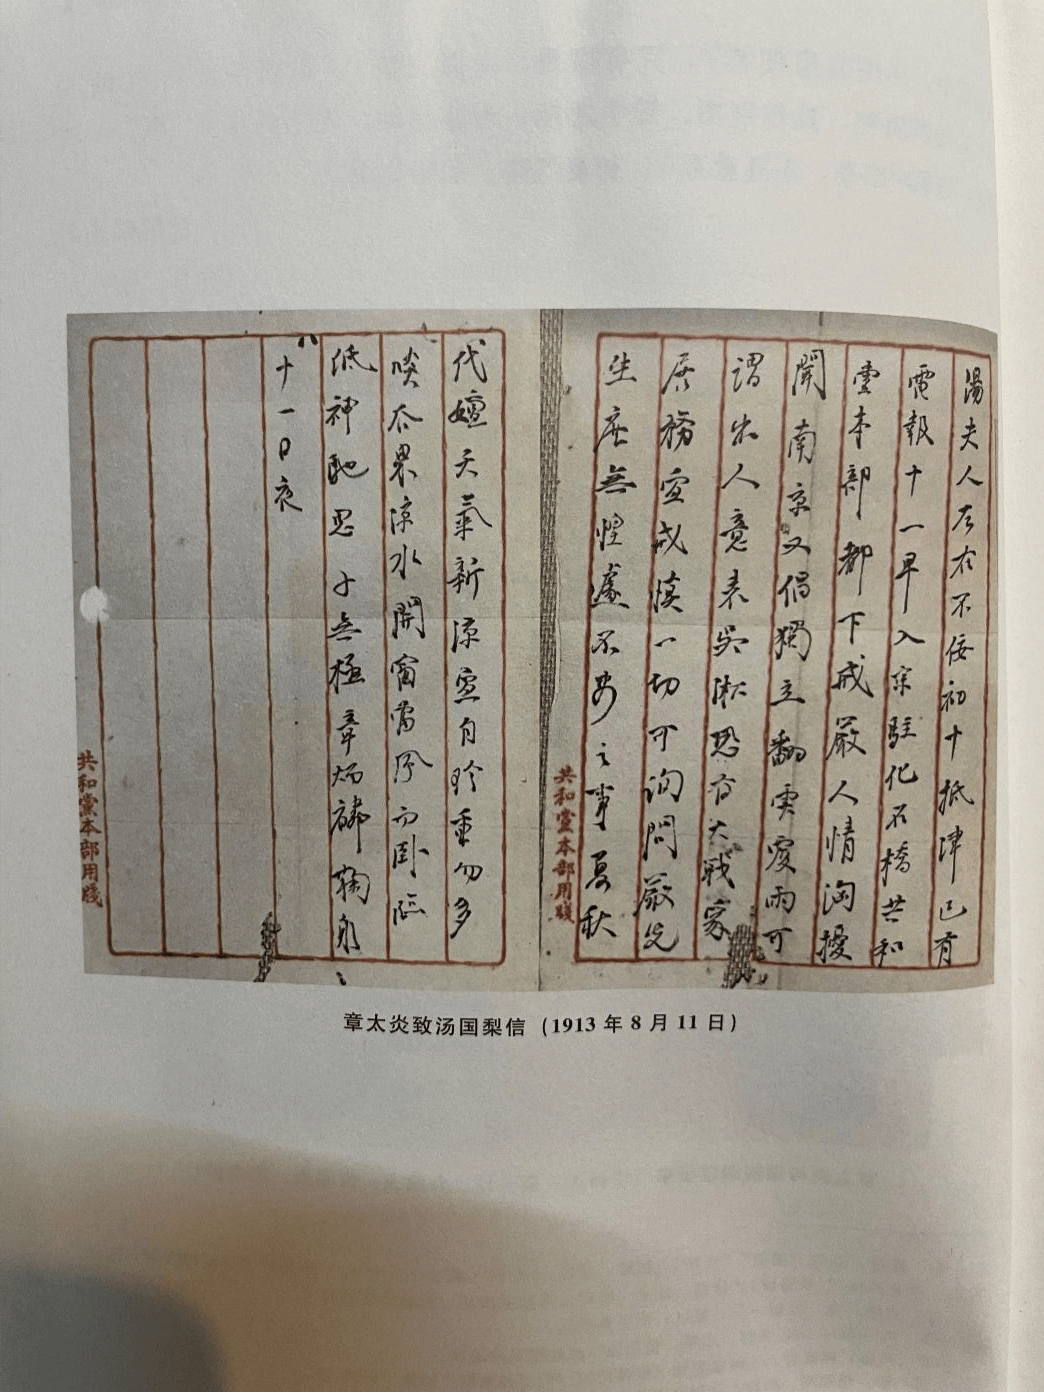 湯夫人左右不佞初十抵津已有
電報十一早入京駐化石橋共和
黨本部都下戒嚴人情洶擾
聞南京又倡獨立翻雲覆雨可
謂出人意表吳淞恐有大戰家
居務宜戒慎一切可詢問嚴先
生庶無惶遽不安之事夏秋
共和黨本部用牋
代嬗天氣新涼宜自珍重勿多
啖瓜果涼水開窗當風而卧臨
紙神馳思子無極章炳麟鞠躬
十一日夜
共和黨本部用牋
章太炎致汤国梨信（1913 年 8 月 11 日）